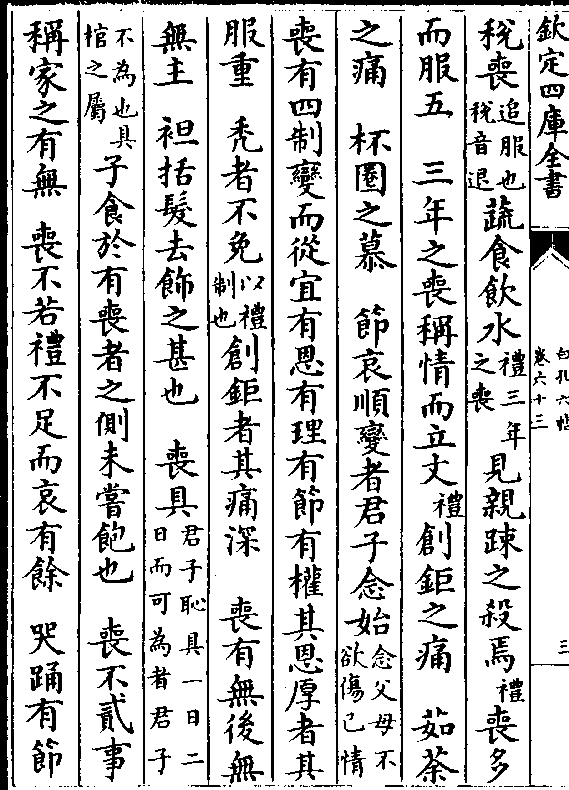 欽定四庫全書
白孔六帖
卷六十三
三
稅喪追服也稅音退蔬食飲水禮三年之喪見親踈之殺焉禮喪多
而服五 三年之喪稱情而立文禮創鉅之痛 茹荼
之痛 杯圈之慕 節哀順變者君子念始念父母不欲傷己情
喪有四制變而從宜有恩有理有節有權其恩厚者其
服重 禿者不免以禮制也創鉅者其痛深 喪有無後無
無主 袒括髮去飾之甚也 喪具君子恥具一日二日而可為者君子
不為也具棺之屬子食於有喪者之側未嘗飽也 喪不貳事
稱家之有無 喪不若禮不足而哀有餘 哭踊有節